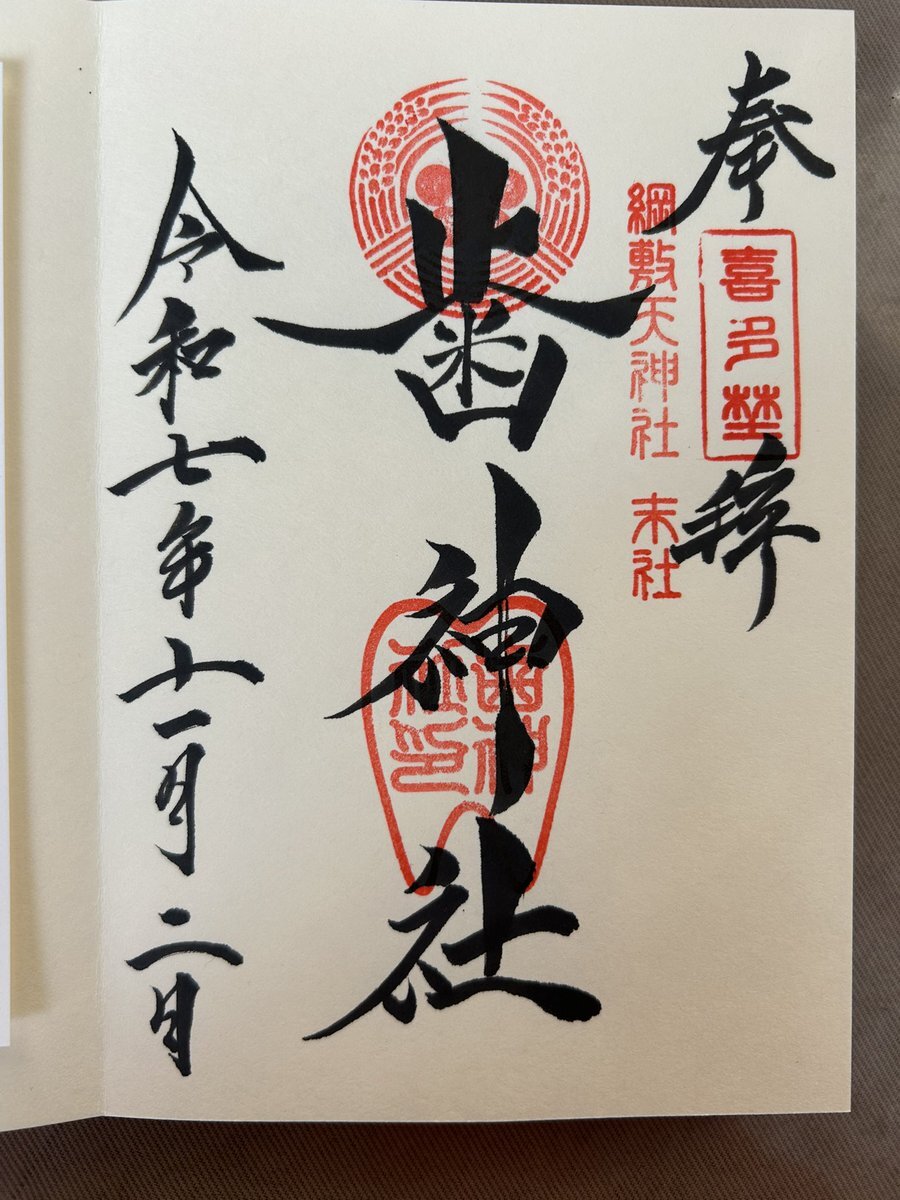 奉拝
喜多埜
綱敷天神社 末社
歯神社
歯神
社印
令和七年十一月二日